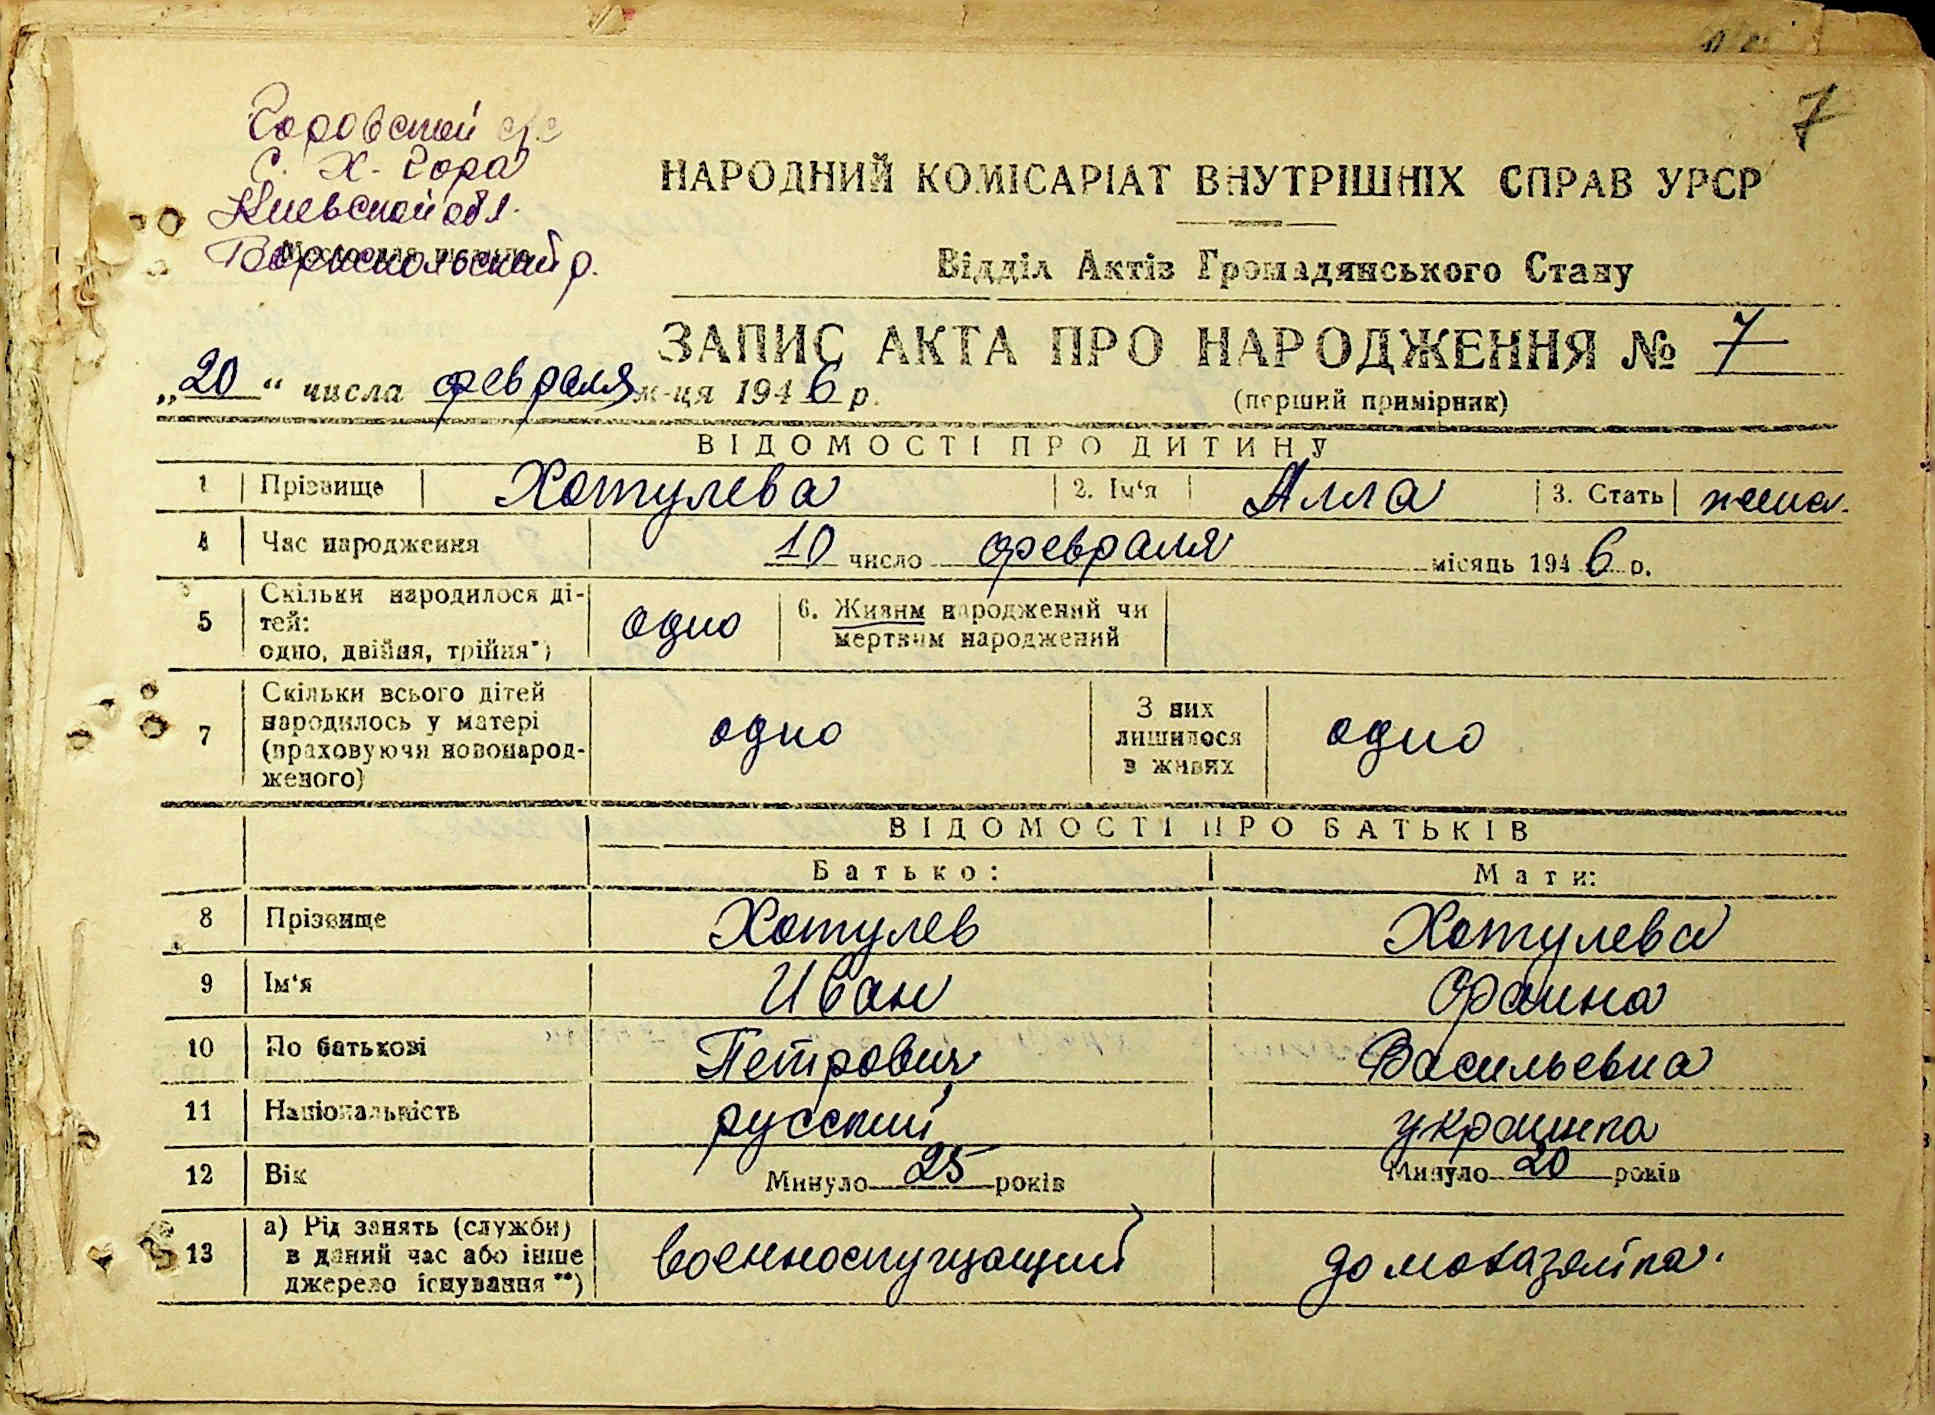 7
Горовской с/с
С. Х. Гора
Киевской обл.
Бориспольский р.
НАРОДНИЙ КОМІСАРІАТ ВНУТРІШНІХ СПРАВ УРСР
Відділ Актів Громадянського Стану
ЗАПИС АКТА ПРО НАРОДЖЕННЯ № 7
„20“ числа февраля м-ця 1946 р.
(перший примірник)
ВІДОМОСТІ ПРО ДИТИНУ
1 Прізвище Хотулева 2. Ім‘я Алла 3. Стать жена.
4 Час народження 10 число февраля місяць 1946 р.
5 Скільки народилося ді-
тей:
одно, двійня, трійня*) одно
6. Живим народжений чи
мертвим народжений
7 Скільки всього дітей
народилось у матері
(враховуючи новонарод-
женого) одно
З них
лишилося
в живих одно
ВІДОМОСТІ ПРО БАТЬКІВ
Батько: Мати:
8 Прізвище Хотулев Хотулева
9 Ім‘я Иван Фраина
10 По батькові Петрович Васильевна
11 Національність русский украинка
12 Вік Минуло 25 років Минуло 20 років
13 а) Рід занять (служби)
в даний час або інше
джерело існування **) военнослужащий домохазяйка.